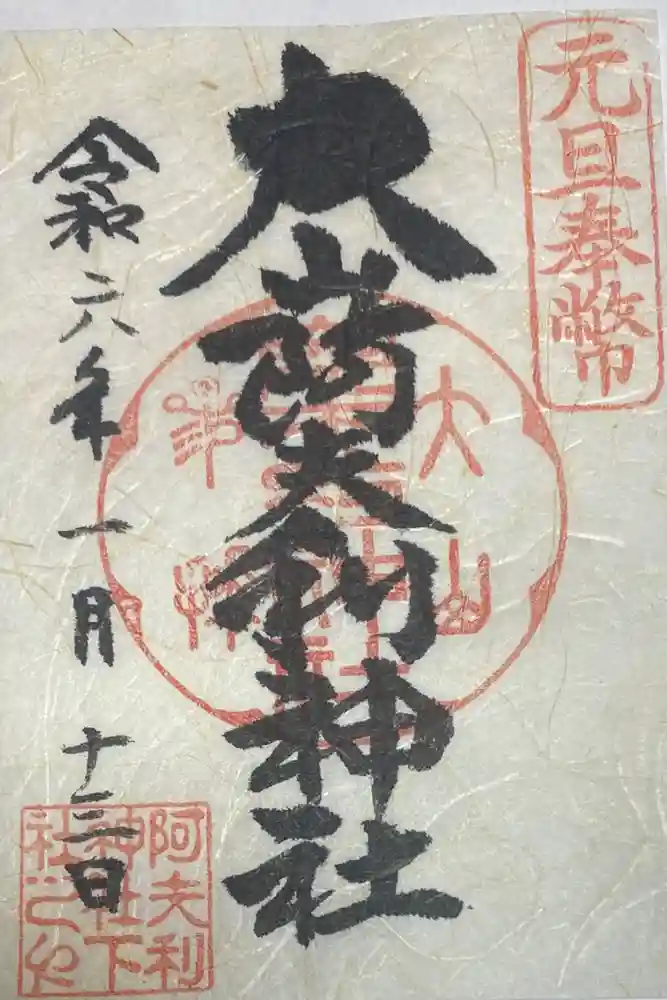 元旦奉幣
大山阿夫利神社
大山
令和六年一月十三日
阿夫利
神社下
社之印